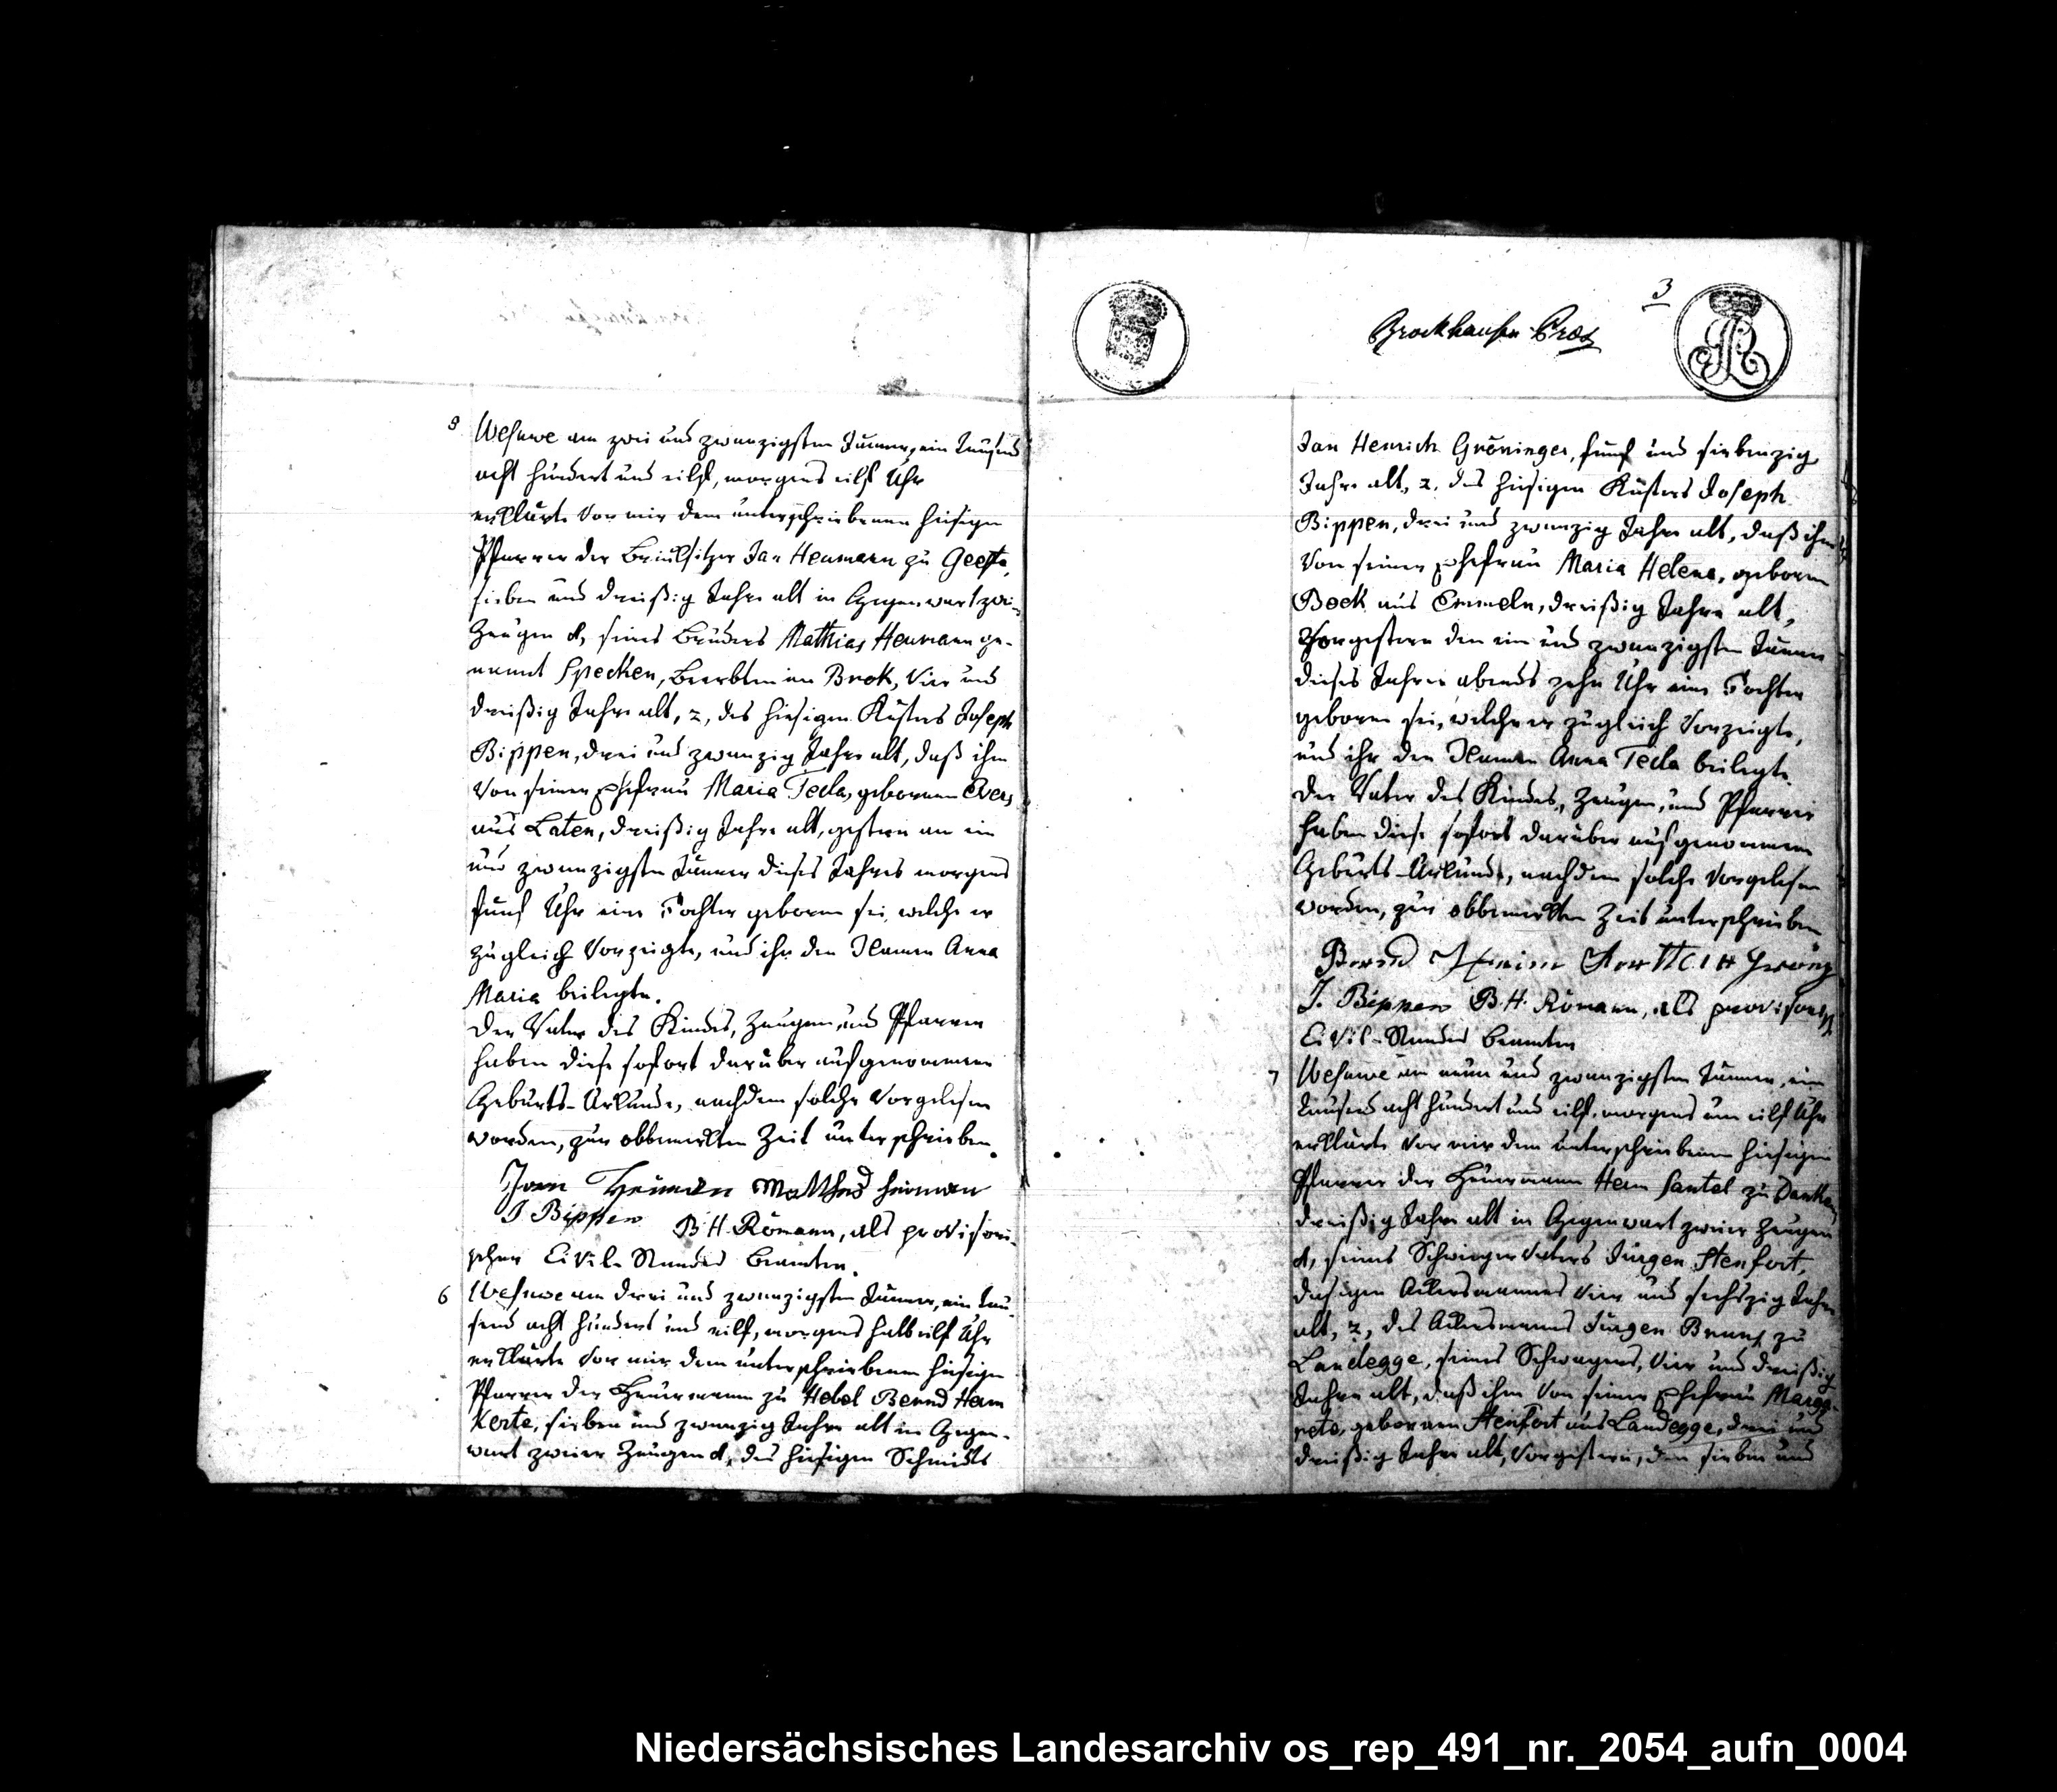 8 Wesuwe am zwei und zwanzigsten Jänner, ein tausend
acht hundert und eilf, morgens eilf Uhr
erklärte vor mir dem unterschriebenen hiesigen
Pfarrer der Brinksitzer Jan Heumann zu Geeste,
sieben und dreißig Jahre alt in Gegenwart zwei-
Zeugen 1, seines Bruders Mathias Heumann ge-
nannt Specken, Beerbten im Brok, vier und
dreißig Jahre alt, 2, des hiesigen Küsters Joseph
Bippen, drei und zwanzig Jahre alt, daß ihm
von seiner Ehefrau Maria Tecla, gebornen Evers
aus Laten, dreißig Jahre alt, gestern am ein
und zwanzigsten Jänner dieses Jahres morgens
fünf Uhr eine Tochter geboren sei, welche er
zugleich vorzeigte, und ihr den Namen Anna
Maria beilegte.
Der Vater des Kindes, Zeugen, und Pfarrer
haben diese sofort darüber aufgenommene
Geburts-Urkunde, nachdem solche vorgelesen
worden, zur obbemerkten Zeit unterschrieben.
Matthias heuman
J Bippen B H. Römann, als provisori-
scher Civil-Standes Beamten.
6 Wesuwe am drei und zwanzigsten Jänner, ein tau-
send acht hundert und eilf, morgens halb eilf Uhr
erklärte vor mir dem unterschriebenen hiesigen
Pfarrer der Heuermann zu Hebel Bernd Herm
Kerte, sieben und zwanzig Jahre alt in Gegen-
wart zweier Zeugen 1, des hiesigen Schmidts
3
Brockhausen Præs
Jan Henrich Gröninger, fünf und siebenzig
Jahre alt, 2, des hiesigen Küsters Joseph
Bippen, drei und zwanzig Jahre alt, daß ihm
von seiner Ehefrau Maria Helena, geboren
Boek aus Emmeln, dreißig Jahre alt,
Vorgestern den ein und zwanzigsten Jänner
dieses Jahres abends zehn Uhr eine Tochter
geboren sei, welche er zugleich vorzeigte,
und ihr den Namen Anna Tecla beilegte.
Der Vater des Kindes, Zeugen, und Pfarrer
haben diese sofort darüber aufgenommene
Geburts-Urkunde, nachdem solche vorgelesen
worden, zur obbemerkten Zeit unterschrieben
Bernd
J. Bippen B. H. Römann, als provisorisch
Civil-Standes Beamten
7 Wesuwe am neun und zwanzigsten Jänner, ein
tausend acht hundert und eilf, morgens um eilf Uhr
erklärte vor mir dem unterschriebenen hiesigen
Pfarrer der Heuermann Herm Santel zu
dreißig Jahre alt in Gegenwart zweier Zeugen
1, seines Schwiegervaters Jürgen Stenfort,
dasigen Ackersmannes vier und sechszig Jahre
alt, 2, des Ackersmanns Jürgen Bruns zu
Landegge, seines Schwagers, vier und dreißig
Jahre alt, daß ihm von seiner Ehefrau Marga-
reta, gebornen Stenfort aus Landegge, drei und
dreißig Jahre alt, vorgestern, den sieben und
Niedersächsisches Landesarchiv os_rep_491_nr._2054_aufn_0004